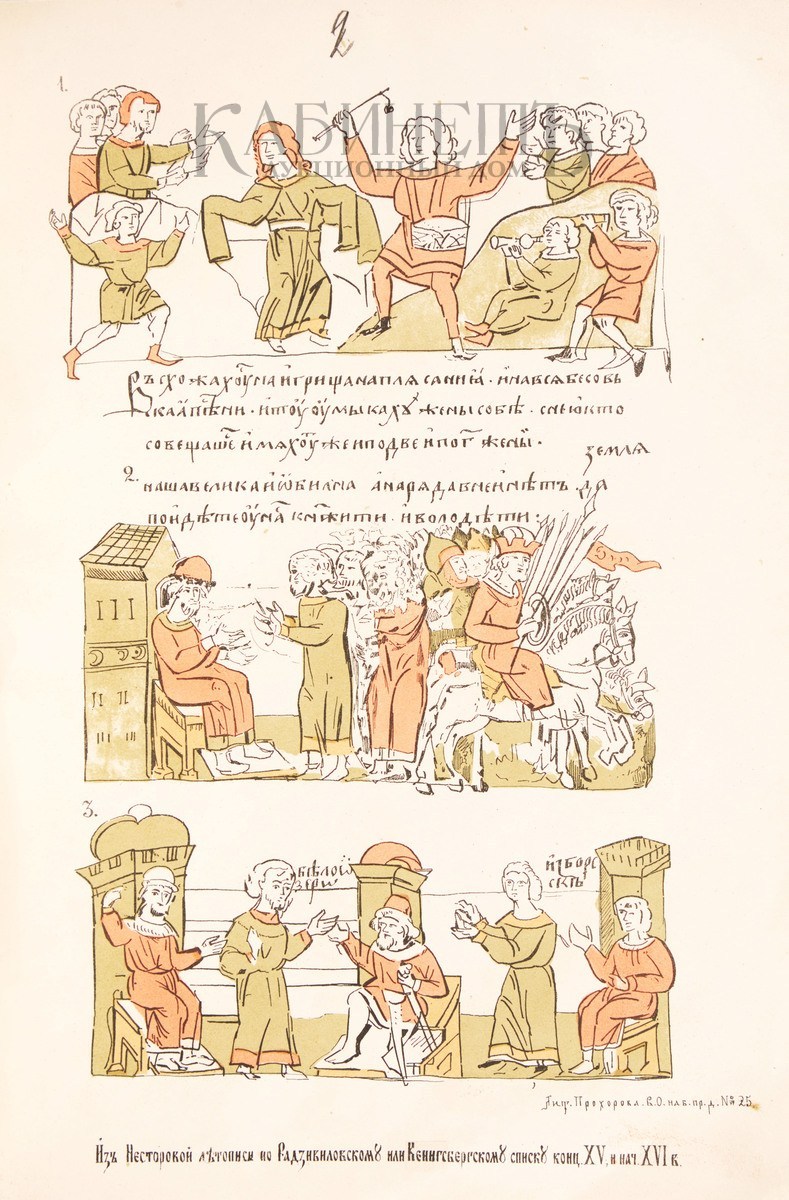 2
1.
КАБИНЕТЪ
АУКЦИОННЫЙ ДОМ
Въсхожахоу на игрища на плясаниıа · и на вся бесовь
скаıа пѣсни · и тоу оумыкахꙋ жены собѣ · с нею кто
совещашеⷭ҇ имяхоу же и по две и по г҃ жены ·
земля
2. наша велика и ѡбилна а наряда в неи нѣтъ · да
поидѣте оу наⷭ҇ кн҃жити · и володѣти :·
3.
бѣлоѡ
зерѡ
изборс
скъ
Лит. Прохорова. В.О. наб. пр. д. № 25.
Изъ Несторовой лѣтописи по Радзивиловскомꙋ или Кенигсбергскомꙋ спискꙋ конц. XV, и нач. XVI в.